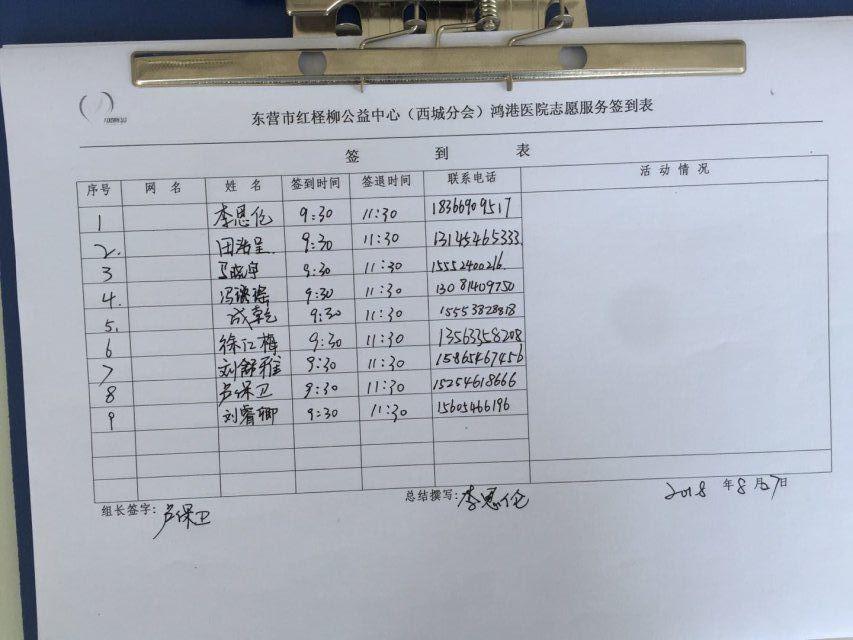 东营市红柽柳公益中心（西城分会）鸿港医院志愿服务签到表
签 到 表
序号 网 名 姓 名 签到时间 签退时间 联系电话 活 动 情 况
1 李恩伦 9:30 11:30 18366909517
2. 田浩呈 9:30 11:30 13145465333
3 9:30 11:30 15552400216
4. 冯瑛瑶 9:30 11:30 13081409750
5. 成乾 9:30 11:30 15553828318
6 徐红梅 9:30 11:30 13563358208
7 刘舒雅 9:30 11:30 15865467456
8 卢保卫 9:30 11:30 15254618666
9 刘睿卿 9:30 11:30 15605466196
组长签字：卢保卫 总结撰写：李恩伦 2018 年 8 月27日